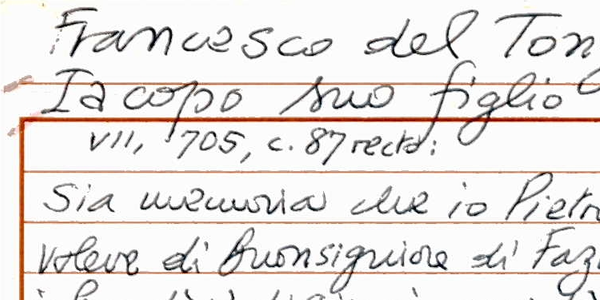 Francesco del Tong
Iacopo suo figlio
VII, 705, c. 87 recto:
Sia memoria che io Pietro
voleva di Buonsigniore di Fazi